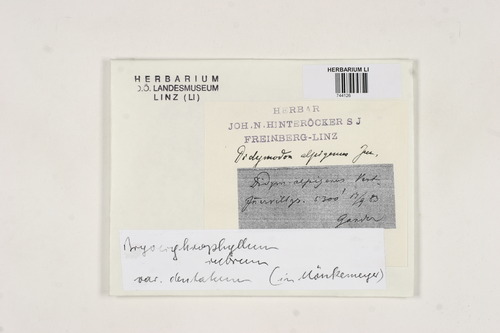 HERBARIUM
O.Ö. LANDESMUSEUM
LINZ (LI)
HERBARIUM LI
744126
HERBAR
JOH. N. HINTERÖCKER S J
FREINBERG-LINZ
Didymodon alpigenus Jur.
alpigenus Vent.
5300'
Gander
Bryoerythrophyllum
rubrum
var. dentatum (in Mönkemeyer)